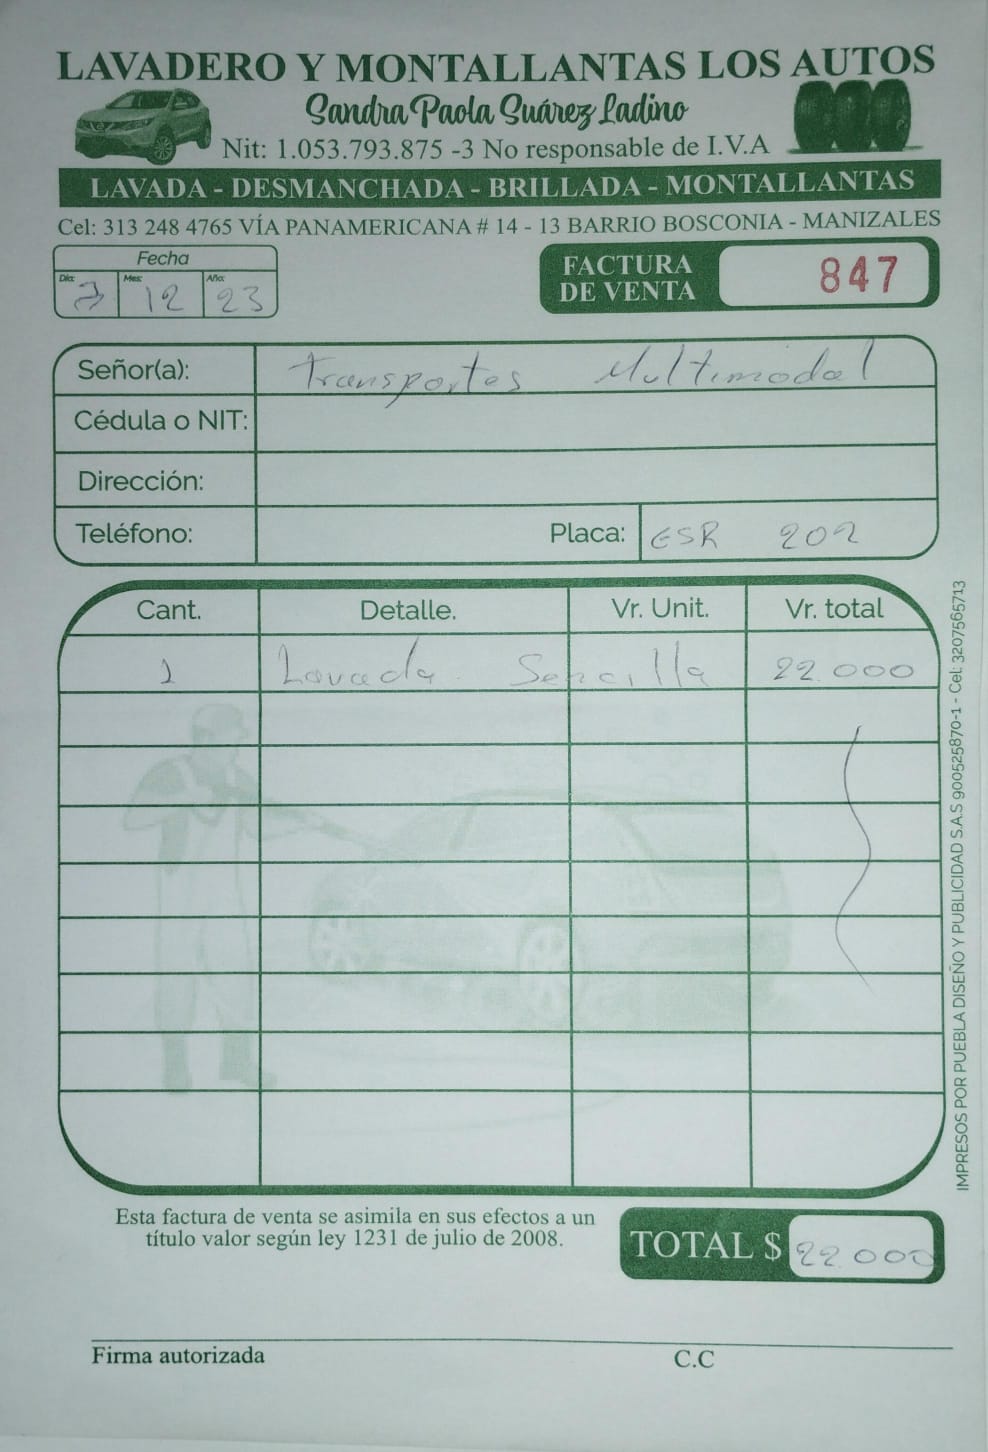 LAVADERO Y MONTALLANTAS LOS AUTOS
Sandra Paola Suárez Ladino
Nit: 1.053.793.875 -3 No responsable de I.V.A
LAVADA - DESMANCHADA - BRILLADA - MONTALLANTAS
Cel: 313 248 4765 VÍA PANAMERICANA # 14 - 13 BARRIO BOSCONIA - MANIZALES
Fecha
Día: Mes: Año:
12 23
FACTURA
DE VENTA
847
Señor(a): Transportes Multimodal
Cédula o NIT:
Dirección:
Teléfono: Placa: ESR 202
Cant. Detalle. Vr. Unit. Vr. total
1 Lavada Sencilla 22.000
Esta factura de venta se asimila en sus efectos a un
título valor según ley 1231 de julio de 2008.
TOTAL $ 22.000
Firma autorizada C.C
IMPRESOS POR PUEBLA DISEÑO Y PUBLICIDAD S.A.S 900525870-1 - Cel: 3207565713